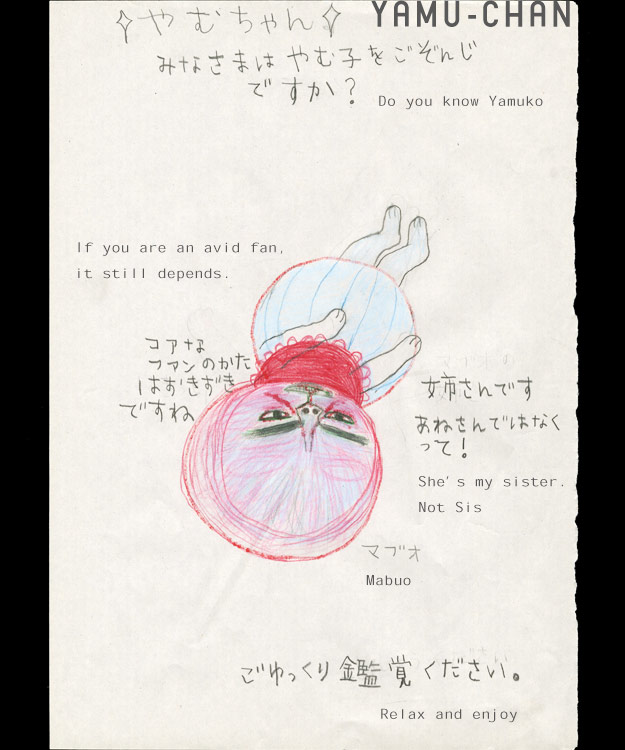 ✧やむちゃん✧
YAMU-CHAN
みなさまは やむ子をごぞんじ
ですか?
Do you know Yamuko
If you are an avid fan,
it still depends.
コアな
ファンのかた
はずきずき
ですね
姉さんです
あねさんではなく
って!
She's my sister.
Not Sis
マブオ
Mabuo
ごゆっくり鑑覚ください。
Relax and enjoy